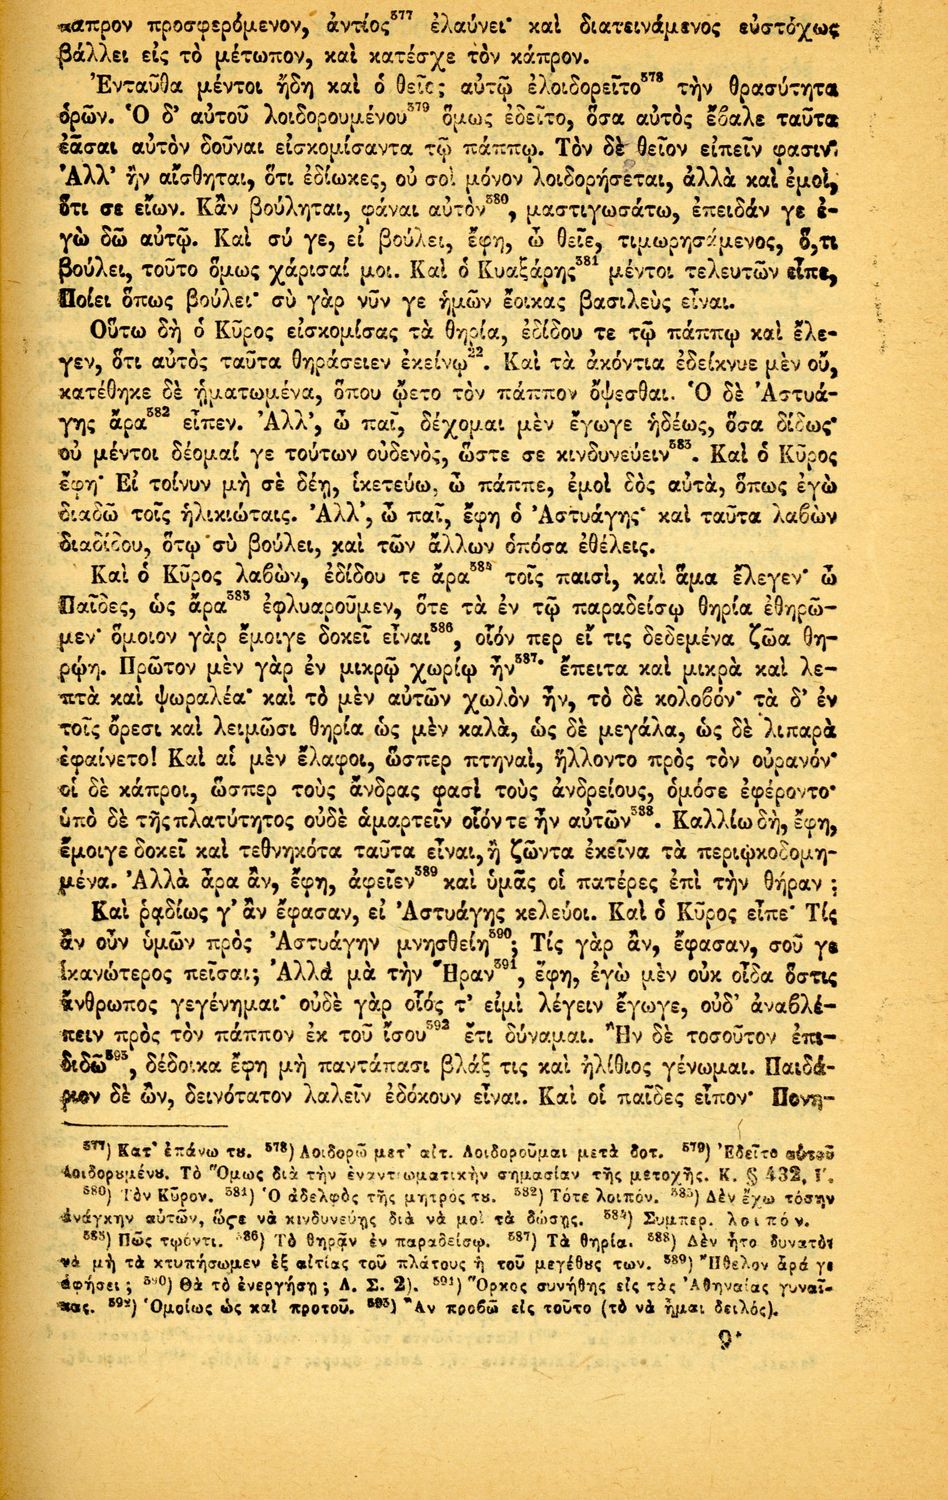 κάπρον προσφερόμενον, ἀντίος⁵⁷⁷ ἐλαύνει· καὶ διατεινάμενος εὐστόχως
βάλλει εἰς τὸ μέτωπον, καὶ κατέσχε τὸν κάπρον.
Ἐνταῦθα μέντοι ἤδη καὶ ὁ θεῖος αὐτῷ ἐλοιδορεῖτο⁵⁷⁸ τὴν θρασύτητα
ὁρῶν. Ὁ δ' αὐτοῦ λοιδορουμένου⁵⁷⁹ ὅμως ἐδεῖτο, ὅσα αὐτὸς ἔβαλε ταῦτα
ἐᾶσαι αὐτὸν δοῦναι εἰσκομίσαντα τῷ πάππῳ. Τὸν δὲ θεῖον εἰπεῖν φασιν·
Ἀλλ' ἢν αἴσθηται, ὅτι ἐδίωκες, οὐ σοὶ μόνον λοιδορήσεται, ἀλλὰ καὶ ἐμοὶ,
ὅτι σε εἴων. Κἂν βούληται, φάναι αὐτὸν⁵⁸⁰, μαστιγωσάτω, ἐπειδάν γε ἐ-
γὼ δῶ αὐτῷ. Καὶ σύ γε, εἰ βούλει, ἔφη, ὦ θεῖε, τιμωρησάμενος, ὅ,τι
βούλει, τοῦτο ὅμως χάρισαί μοι. Καὶ ὁ Κυαξάρης⁵⁸¹ μέντοι τελευτῶν εἶπε,
Ποίει ὅπως βούλει· σὺ γὰρ νῦν γε ἡμῶν ἔοικας βασιλεὺς εἶναι.
Οὕτω δὴ ὁ Κῦρος εἰσκομίσας τὰ θηρία, ἐδίδου τε τῷ πάππῳ καὶ ἔλε-
γεν, ὅτι αὐτὸς ταῦτα θηράσειεν ἐκείνῳ²². Καὶ τὰ ἀκόντια ἐδείκνυε μὲν οὔ,
κατέθηκε δὲ ᾑματωμένα, ὅπου ᾤετο τὸν πάππον ὄψεσθαι. Ὁ δὲ Ἀστυά-
γης ἄρα⁵⁸² εἶπεν. Ἀλλ', ὦ παῖ, δέχομαι μὲν ἔγωγε ἡδέως, ὅσα δίδως·
οὐ μέντοι δέομαί γε τούτων οὐδενὸς, ὥστε σε κινδυνεύειν⁵⁸³. Καὶ ὁ Κῦρος
ἔφη· Εἰ τοίνυν μὴ σὲ δέῃ, ἱκετεύω, ὦ πάππε, ἐμοὶ δὸς αὐτὰ, ὅπως ἐγὼ
διαδῶ τοῖς ἡλικιώταις. Ἀλλ', ὦ παῖ, ἔφη ὁ Ἀστυάγης· καὶ ταῦτα λαβὼν
διαδίδου, ὅτῳ σὺ βούλει, καὶ τῶν ἄλλων ὁπόσα ἐθέλεις.
Καὶ ὁ Κῦρος λαβὼν, ἐδίδου τε ἄρα⁵⁸⁴ τοῖς παισὶ, καὶ ἅμα ἔλεγεν· ὦ
Παῖδες, ὡς ἄρα⁵⁸⁵ ἐφλυαροῦμεν, ὅτε τὰ ἐν τῷ παραδείσῳ θηρία ἐθηρῶ-
μεν· ὅμοιον γὰρ ἔμοιγε δοκεῖ εἶναι⁵⁸⁶, οἷόν περ εἴ τις δεδεμένα ζῶα θη-
ρῴη. Πρῶτον μὲν γὰρ ἐν μικρῷ χωρίῳ ἦν⁵⁸⁷· ἔπειτα καὶ μικρὰ καὶ λε-
πτὰ καὶ ψωραλέα· καὶ τὸ μὲν αὐτῶν χωλὸν ἦν, τὸ δὲ κολοβόν· τὰ δ' ἐν
τοῖς ὄρεσι καὶ λειμῶσι θηρία ὡς μὲν καλὰ, ὡς δὲ μεγάλα, ὡς δὲ λιπαρὰ
ἐφαίνετο! Καὶ αἱ μὲν ἔλαφοι, ὥσπερ πτηναὶ, ἥλλοντο πρὸς τὸν οὐρανόν·
οἱ δὲ κάπροι, ὥσπερ τοὺς ἄνδρας φασὶ τοὺς ἀνδρείους, ὁμόσε ἐφέροντο·
ὑπὸ δὲ τῆς πλατύτητος οὐδὲ ἁμαρτεῖν οἷόν τε ἦν αὐτῶν⁵⁸⁸. Καλλίω δὴ, ἔφη,
ἔμοιγε δοκεῖ καὶ τεθνηκότα ταῦτα εἶναι, ἢ ζῶντα ἐκεῖνα τὰ περιῳκοδομη-
μένα. Ἀλλὰ ἆρα ἂν, ἔφη, ἀφεῖεν⁵⁸⁹ καὶ ὑμᾶς οἱ πατέρες ἐπὶ τὴν θήραν ;
Καὶ ῥᾳδίως γ' ἂν ἔφασαν, εἰ Ἀστυάγης κελεύοι. Καὶ ὁ Κῦρος εἶπε· Τίς
ἂν οὖν ὑμῶν πρὸς Ἀστυάγην μνησθείη⁵⁹⁰; Τίς γὰρ ἂν, ἔφασαν, σοῦ γε
ἱκανώτερος πεῖσαι; Ἀλλὰ μὰ τὴν Ἥραν⁵⁹¹, ἔφη, ἐγὼ μὲν οὐκ οἶδα ὅστις
ἄνθρωπος γεγένημαι· οὐδὲ γὰρ οἷός τ' εἰμὶ λέγειν ἔγωγε, οὐδ' ἀναβλέ-
πειν πρὸς τὸν πάππον ἐκ τοῦ ἴσου⁵⁹² ἔτι δύναμαι. Ἢν δὲ τοσοῦτον ἐπι-
διδῶ⁵⁹³, δέδοικα ἔφη μὴ παντάπασι βλάξ τις καὶ ἠλίθιος γένωμαι. Παιδά-
ριον δὲ ὢν, δεινότατον λαλεῖν ἐδόκουν εἶναι. Καὶ οἱ παῖδες εἶπον· Πονη-
⁵⁷⁷) Κατ' ἐπάνω του. ⁵⁷⁸) Λοιδορῶ μετ' αἰτ. Λοιδοροῦμαι μετὰ δοτ. ⁵⁷⁹) Ἐδεῖτο αὐτοῦ
λοιδορουμένου. Τὸ Ὅμως διὰ τὴν ἐναντιωματικὴν σημασίαν τῆς μετοχῆς. Κ. § 432, Γ.
⁵⁸⁰) Τὸν Κῦρον. ⁵⁸¹) Ὁ ἀδελφὸς τῆς μητρός του. ⁵⁸²) Τότε λοιπόν. ⁵⁸³) Δὲν ἔχω τόσην
ἀνάγκην αὐτῶν, ὥστε νὰ κινδυνεύῃς διὰ νὰ μοὶ τὰ δώσῃς. ⁵⁸⁴) Συμπερ. λοιπόν.
⁵⁸⁵) Πῶς τῳόντι. ⁵⁸⁶) Τὸ θηρᾷν ἐν παραδείσῳ. ⁵⁸⁷) Τὰ θηρία. ⁵⁸⁸) Δὲν ἦτο δυνατὸν
νὰ μὴ τὰ κτυπήσωμεν ἐξ αἰτίας τοῦ πλάτους ἢ τοῦ μεγέθους των. ⁵⁸⁹) Ἤθελον ἆρά γε
ἀφήσει ; ⁵⁹⁰) Θὰ τὸ ἐνεργήσῃ ; Λ. Σ. 2). ⁵⁹¹) Ὅρκος συνήθης εἰς τὰς Ἀθηναίας γυναῖ-
κας. ⁵⁹²) Ὁμοίως ὡς καὶ προτοῦ. ⁵⁹³) Ἂν προβῶ εἰς τοῦτο (τὸ νὰ ἦμαι δειλός).
9*